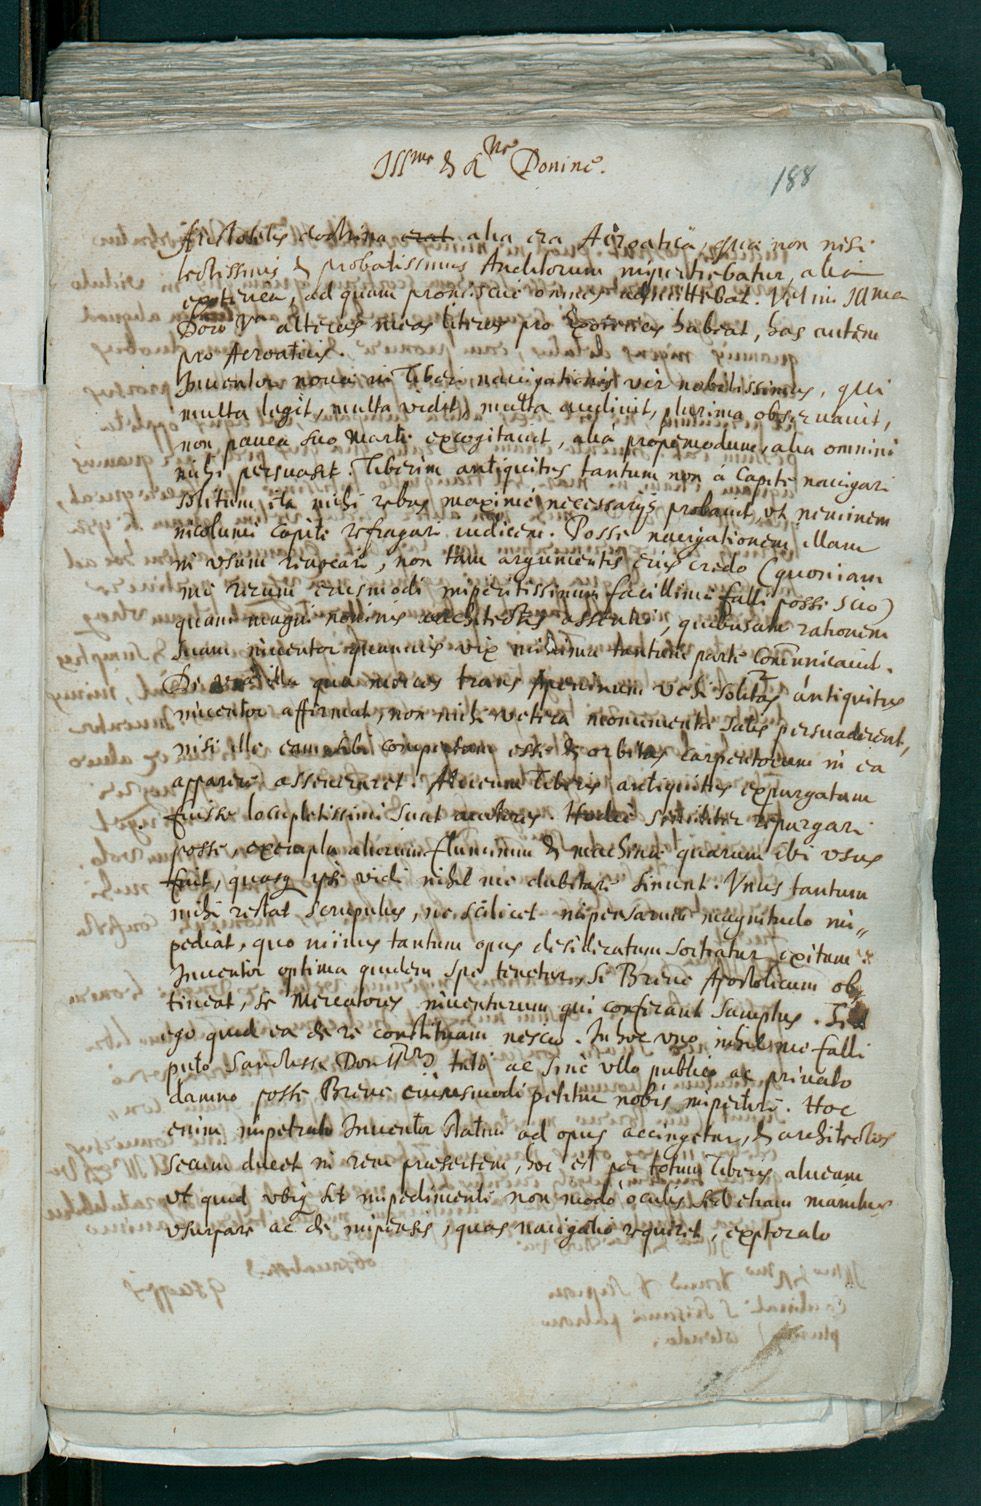 Ill.me & R.me Domine.
188
Aristotelis doctrina erat alia era Acroatica, quae non nisi
lectissimis & probatissimis Auditorum impertiebatur, alia
exoterica, ad quam promiscue omnes admittebat. Velim Illma
Do.o V.ra alteras meas literas pro Exotericis habeat, has autem
pro Acroateis.
Inventor novae in Tiberi navigationis vir nobilissimus, qui
multa legit, multa vidit, multa audivit, plurima observavit,
non pauca suo Marte excogitavit, alia propemodum, alia omnino
mihi persuasit. Tiberim antiquitus tantum non à capite navigari
solitum, ita mihi rebus maximè necessarijs probavit, ut neminem
incolumi capite refragari iudicem. Posse navigationem illam
in usum revocari, non tam argumentis eius credo (quoniam
me rerum eiusmodi imperitissimum facillimè falli posse scio)
quam magni nominis architectis assentior, quibuscum rationem
suam inventor quamvis vix minima tantum parte communicavit.
De via illa qua merces trans Apenninum vehi solitas antiquitus
inventor affirmat, non mihi vetera monumenta satis persuaderent,
nisi ille eam sibi compertam esse & orbitas carpentorum in ea
apparere assereret. Alveum Tiberis antiquitus expurgatum
fuisse locupletissimi sunt auctores. Hodie similiter repurgari
posse, exempla aliorum fluminum & machinae quarum ibi usus
fuit, quasq ipse vidi nihil me dubitare sinunt. Unus tantum
mihi restat scrupulus, ne scilicet impensarum magnitudo im„
pediat, quo minus tantum opus desideratum sortiatur exitum.
Inventor optima quidem spe tenetur, si Breve Apostolicum ob„
tineat, se Mercatores inventurum qui conferant sumptus. Sed
ego quid ea de re constituam nescio. In hoc uno nihil me falli
puto Sanctiss. Don. tutò ac sine ullo publico ac privato
damno posse Breve eiusmodi petitum nobis impertiri. Hoc
enim impetrato Inventor statim ad opus accingetur, & architectos
secum ducet in rem praesentem, hoc est per totum Tiberis alveum
ut quid ubiq sit impedimenti non modò oculis sed etiam manibus
usurpare ac de impensis, quas navigatio requirit, explorato